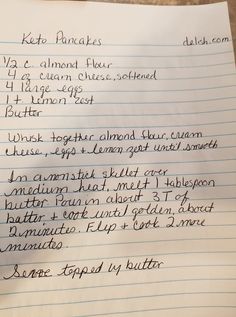 Keto Pancakes delish.com
1/2 c. almond flour
4 oz cream cheese, softened
4 large eggs
1 t lemon zest
Butter
Whisk together almond flour, cream
cheese, eggs + lemon zest until smooth
In a nonstick skillet over
medium heat, melt 1 tablespoon
butter Pour in about 3 T of
batter + cook until golden, about
2 minutes. Flip + cook 2 more
minutes.
Serve topped w/ butter